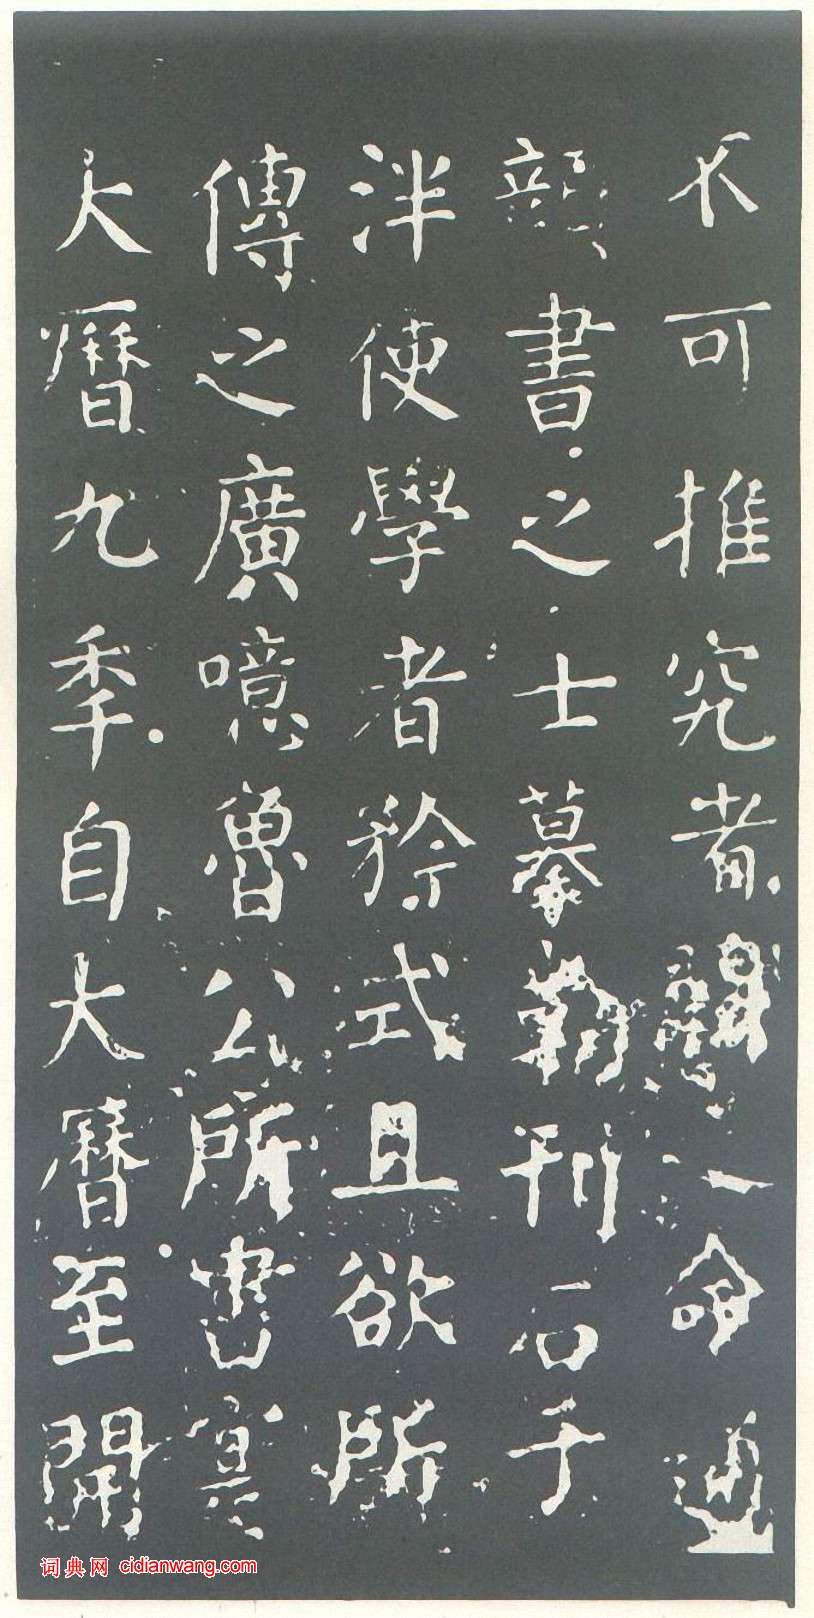 不可推究者聽一命通
韻書之士摹勒刊石于
泮使學者矜式且欲所
傳之廣噫魯公所書寔
大曆九秊自大曆至開
词典网 cidianwang.com